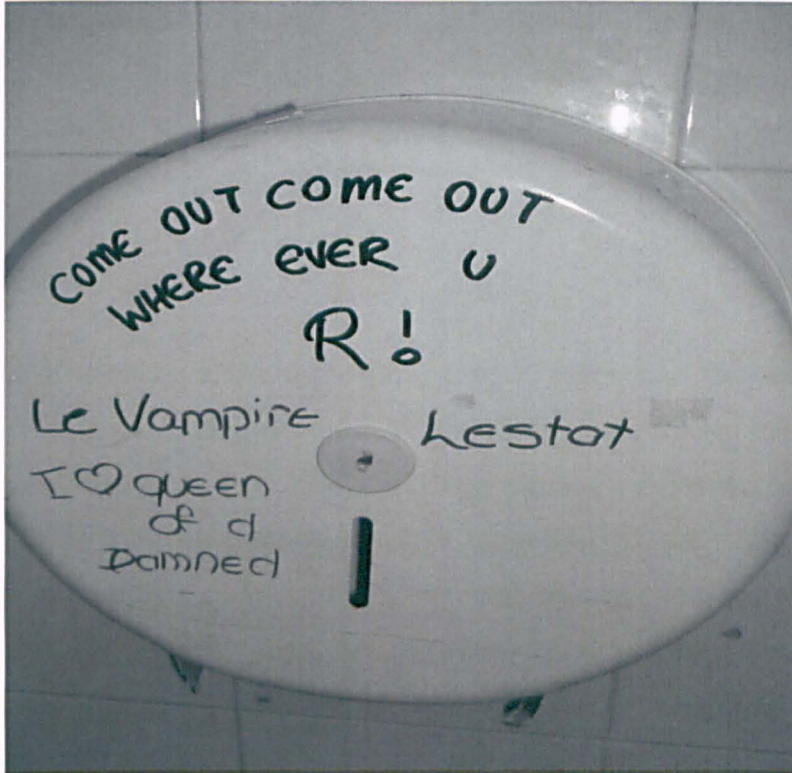 COME OUT COME OUT
WHERE EVER U
R!
Le Vampire Lestat
I ♡ queen
of d
Damned